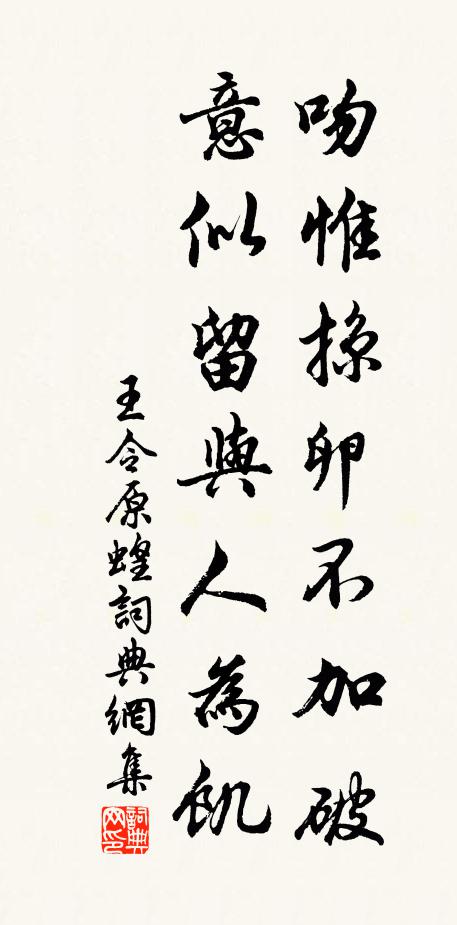 吻惟掠卵不加破
意似留與人為飢
王令原蝗詞典網集
詞典网印